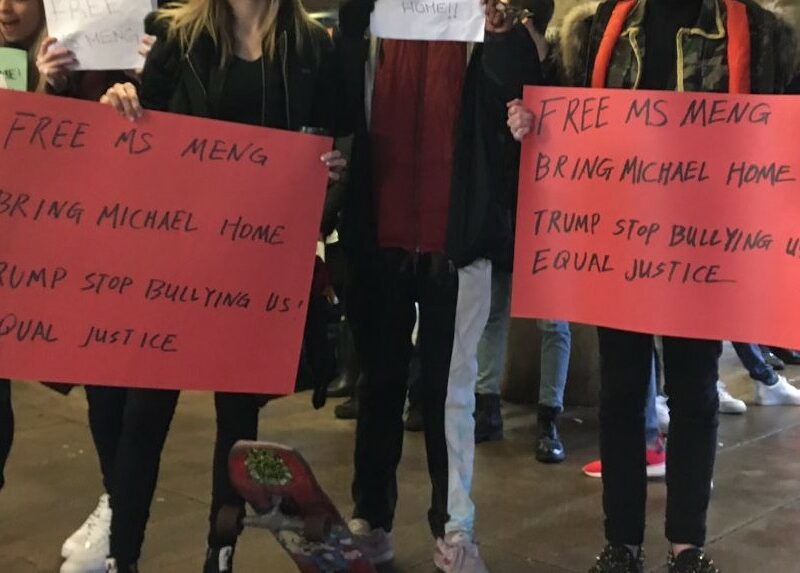 FREE
MENG
HOME!!
ME!
FREE MS MENG
BRING MICHAEL HOME
RUMP STOP BULLYING US!
QUAL JUSTICE
FREE MS MENG
BRING MICHAEL HOME
TRUMP STOP BULLYING U
EQUAL JUSTICE